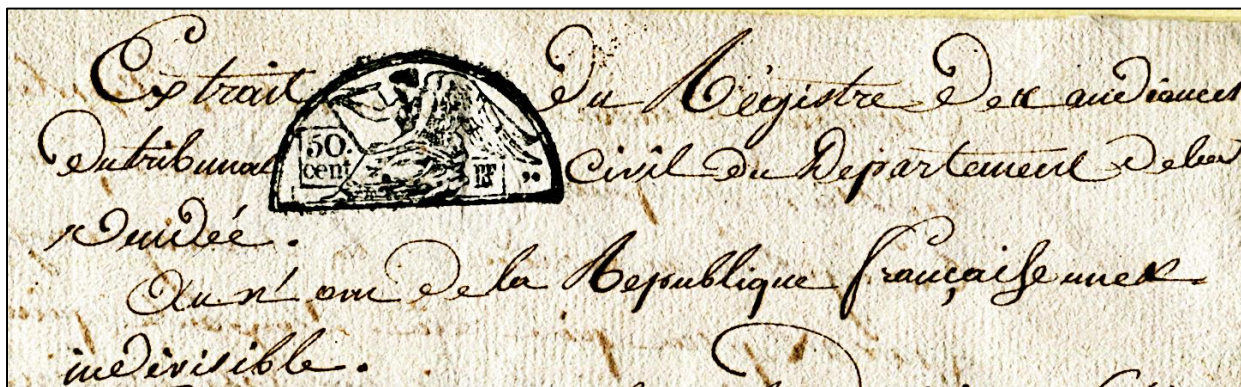 Extrait du Régistre Des audiances
du tribunal civil du Departement De la
50.
cent
RF
Vendée.
Au nom De la Republique françaiſe une &
indivisible.